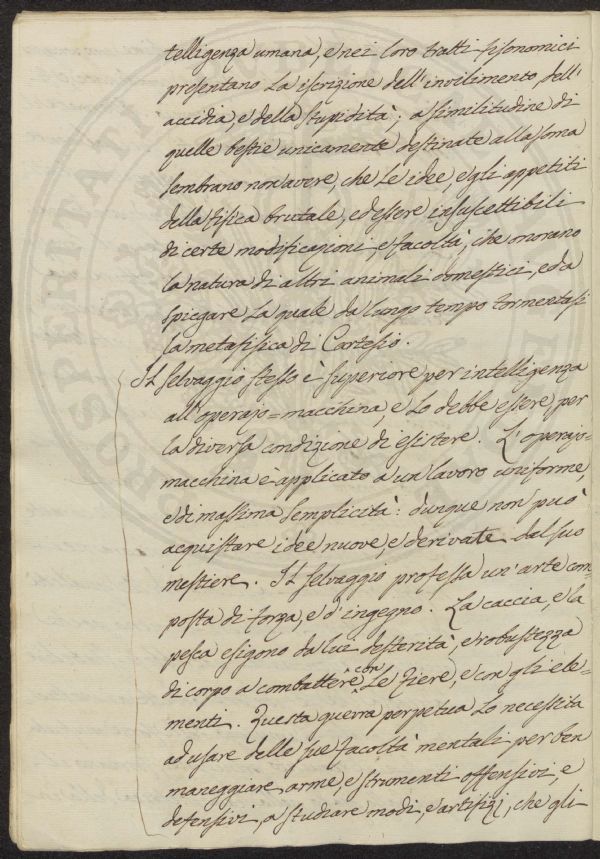 telligenza umana, e nei loro tratti fisonomici
presentano la iscrizione dell'invilimento, dell'
accidia, e della stupidità; a similitudine di
quelle bestie unicamente destinate alla soma
sembrano non avere, che le idee, e gli appetiti
della fisica brutale, ed essere insuscettibili
di certe modificazioni, e facoltà, che onorano
la natura di altri animali domestici, ed a
spiegare la quale da lungo tempo tormentasi
la metafisica di Cartesio.
Il selvaggio stesso è superiore per intelligenza
all'operajo=macchina, e lo debbe essere per
la diversa condizione di esistere. L'operajo=
macchina è applicato a un lavoro uniforme,
e di massima semplicità: dunque non può
acquistare idee nuove, e derivate dal suo
mestiere. Il selvaggio professa un'arte com
posta di forza, e d'ingegno. La caccia, e la
pesca esigono da lui desterità, e robustezza
di corpo a combattere con le fiere, e con gli ele=
menti. Questa guerra perpetua lo necessita
ad usare delle sue facoltà mentali per ben
maneggiare arme, e strumenti offensivi, e
defensivi, a studiare modi, e artifizj, che gli
PROSPERITATI